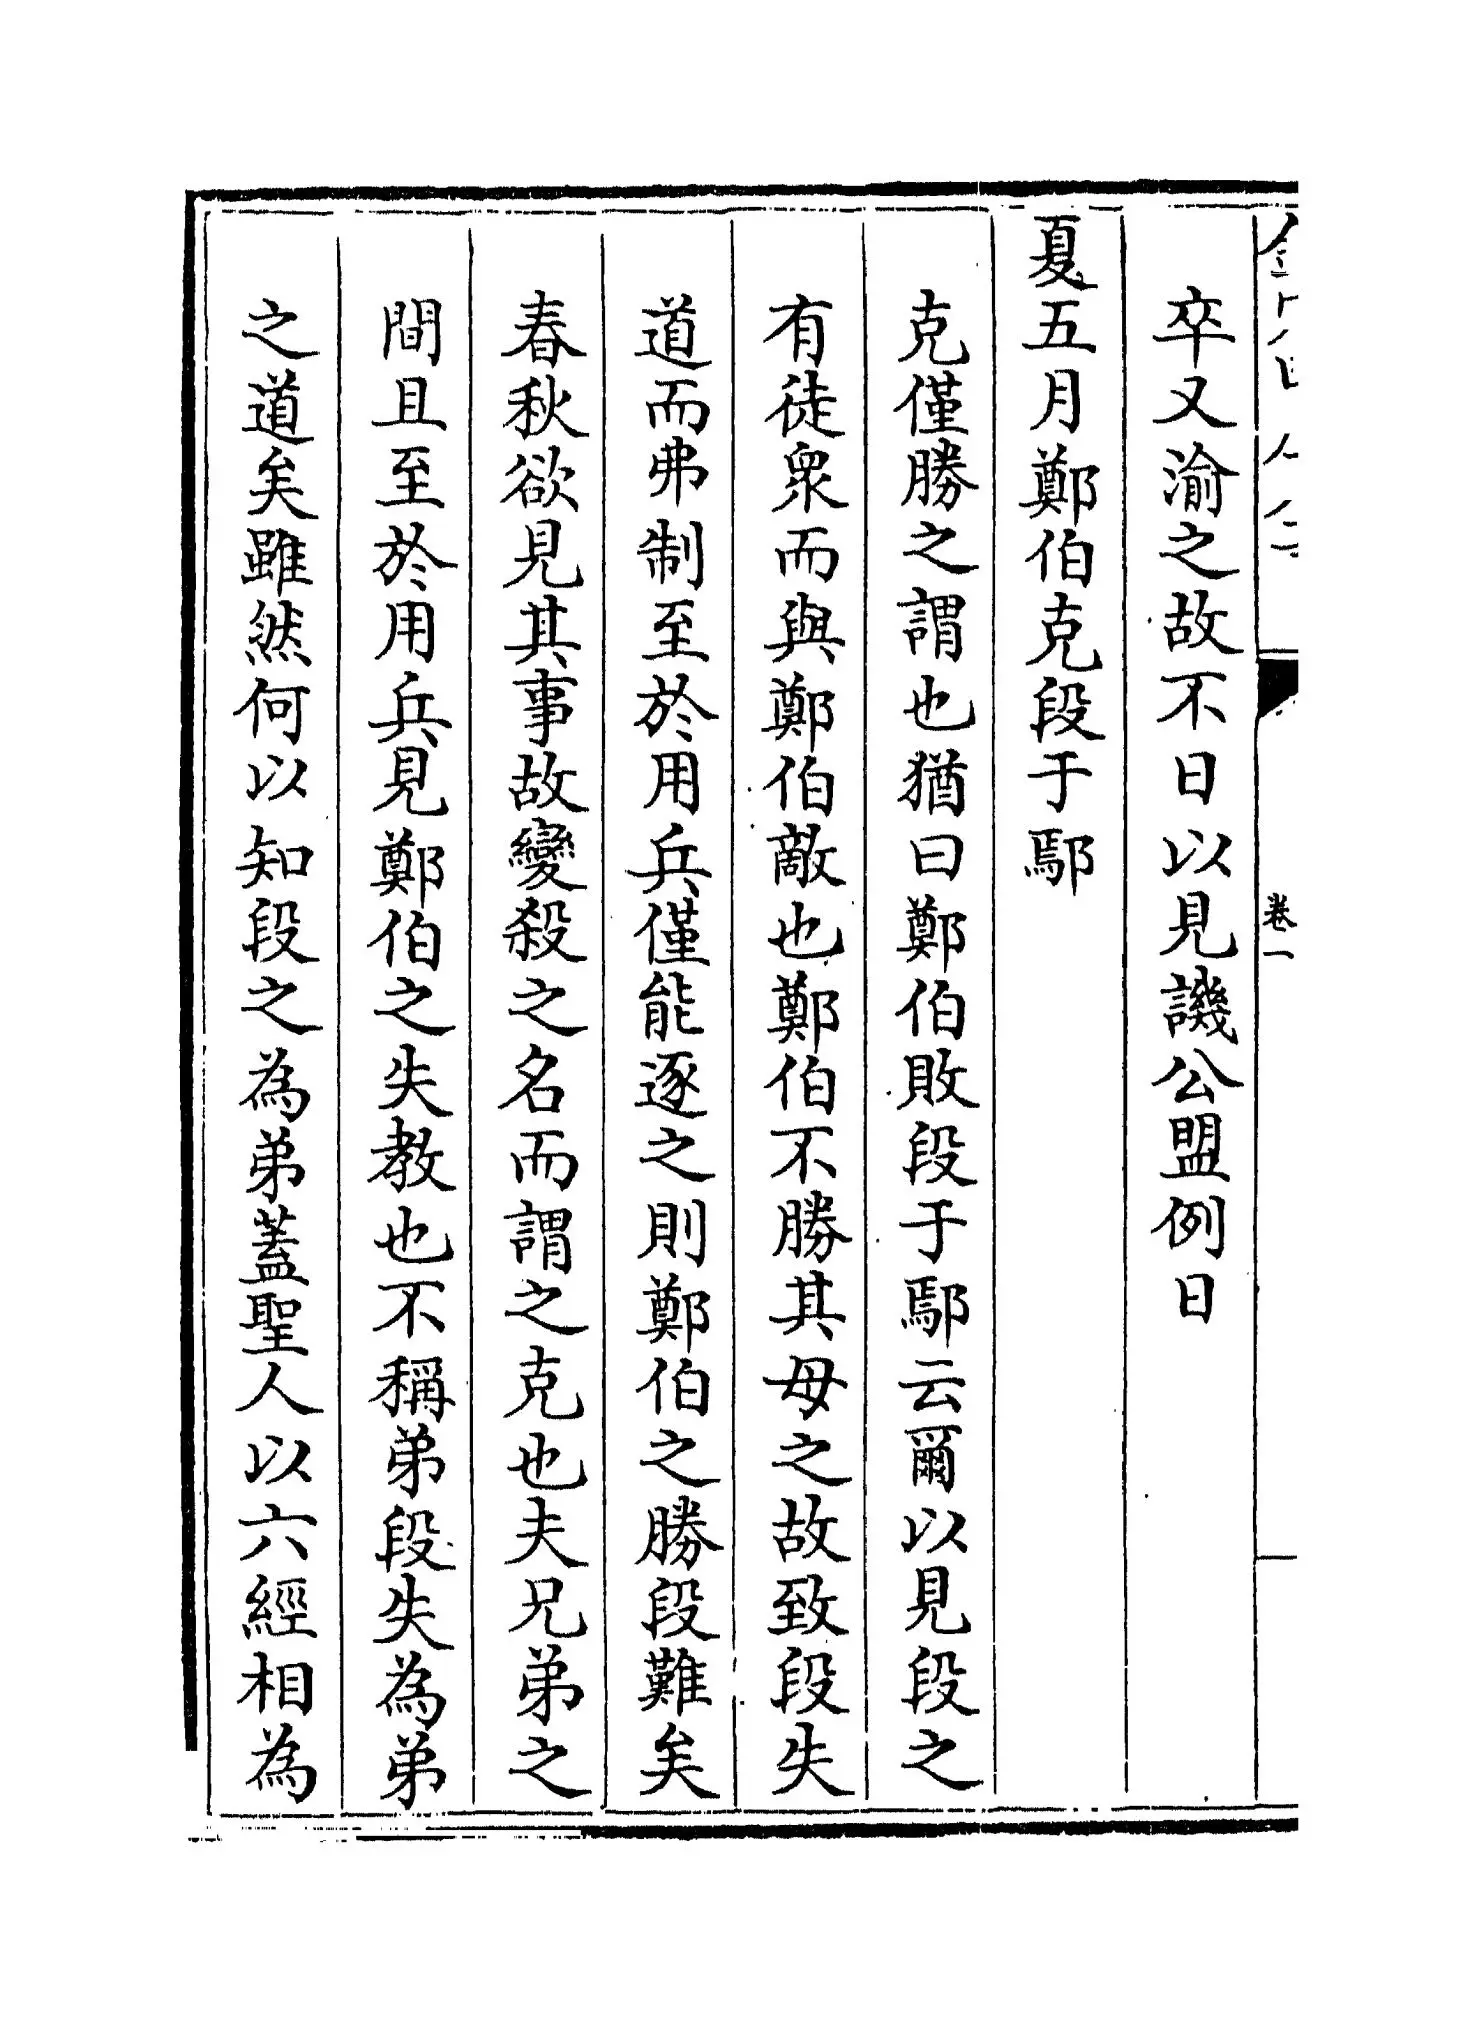 卒又渝之故不日以見譏公盟例日
夏五月鄭伯克段于鄢
克僅勝之謂也猶曰鄭伯敗段于鄢云爾以見段之
有徒衆而與鄭伯敵也鄭伯不勝其母之故致段失
道而弗制至於用兵僅能逐之則鄭伯之勝段難矣
春秋欲見其事故變殺之名而謂之克也夫兄弟之
間且至於用兵見鄭伯之失教也不稱弟段失為弟
之道矣雖然何以知段之為弟蓋聖人以六經相為
卷一